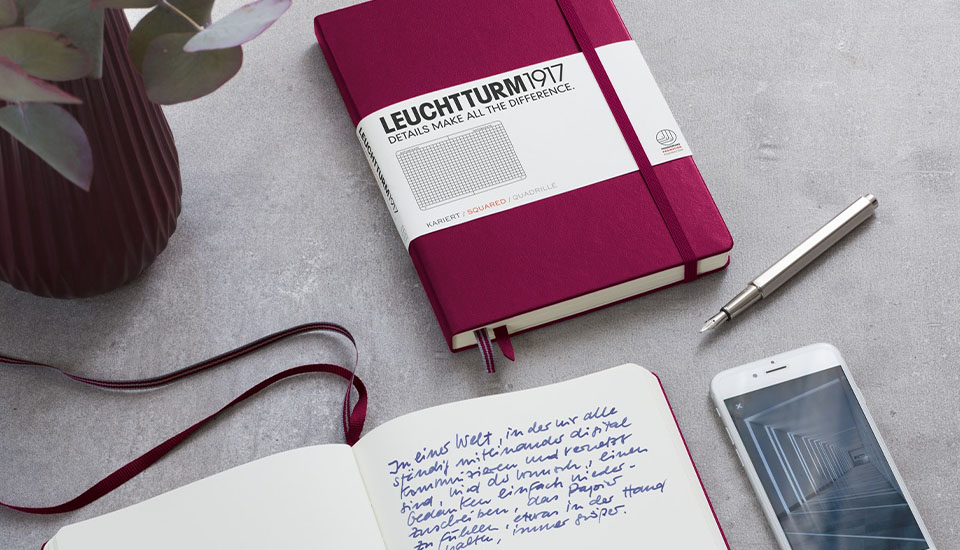 LEUCHTTURM1917
DETAILS MAKE ALL THE DIFFERENCE.
KARIERT / SQUARED / QUADRILLE
LEUCHTTURM1917
In einer Welt, in der wir alle
ständig miteinander digital
kommunizieren und vernetzt
sind, wird der Wunsch, einen
Gedanken einfach nieder-
zuschreiben, das Papier
zu fühlen, etwas in der Hand
halten, immer größer.